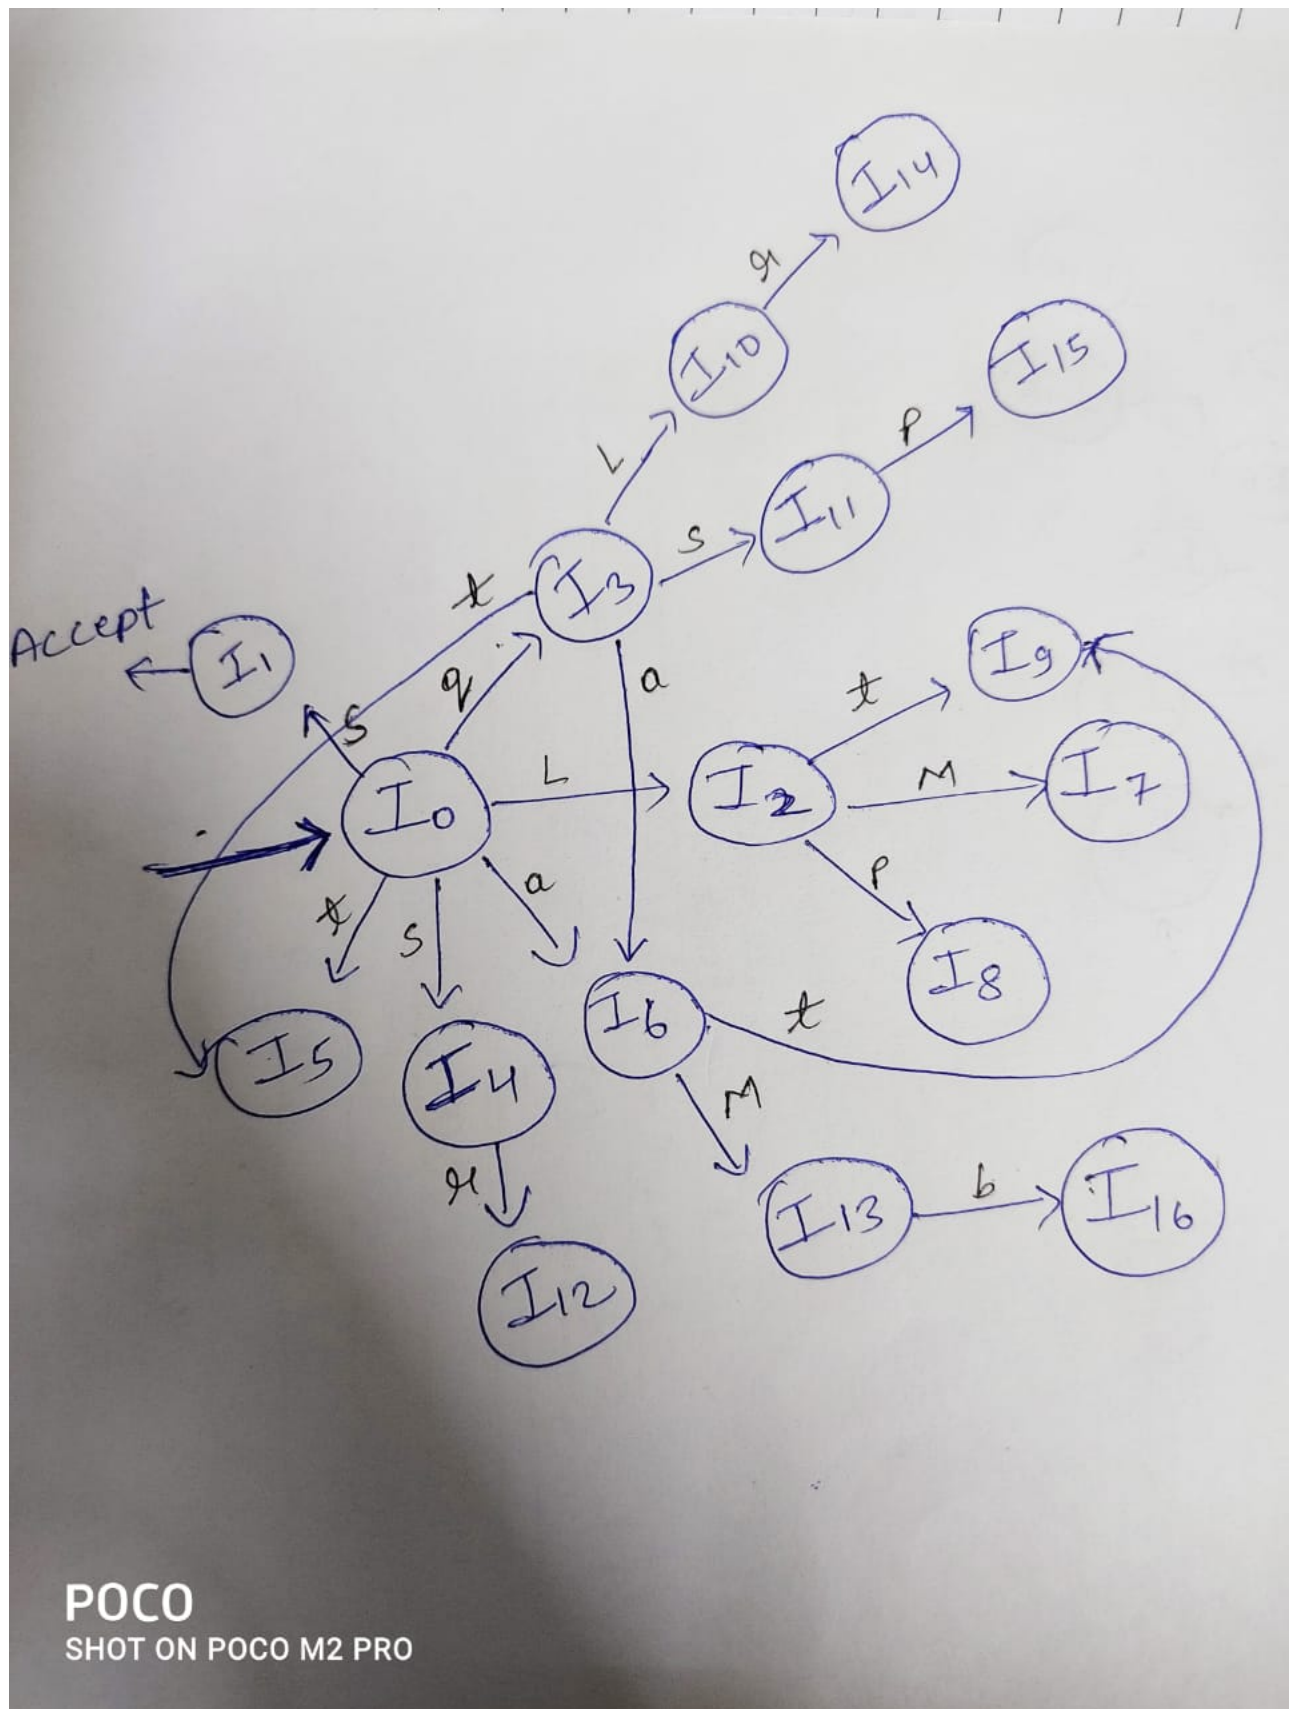 I14
r
I10
I15
P
L
I11
S
I3
t
Accept
I1
q
a
I9
S
t
I0
L
I2
M
I7
a
P
t
S
I8
I6
t
I5
I4
M
r
I13
b
I16
I12
POCO
SHOT ON POCO M2 PRO